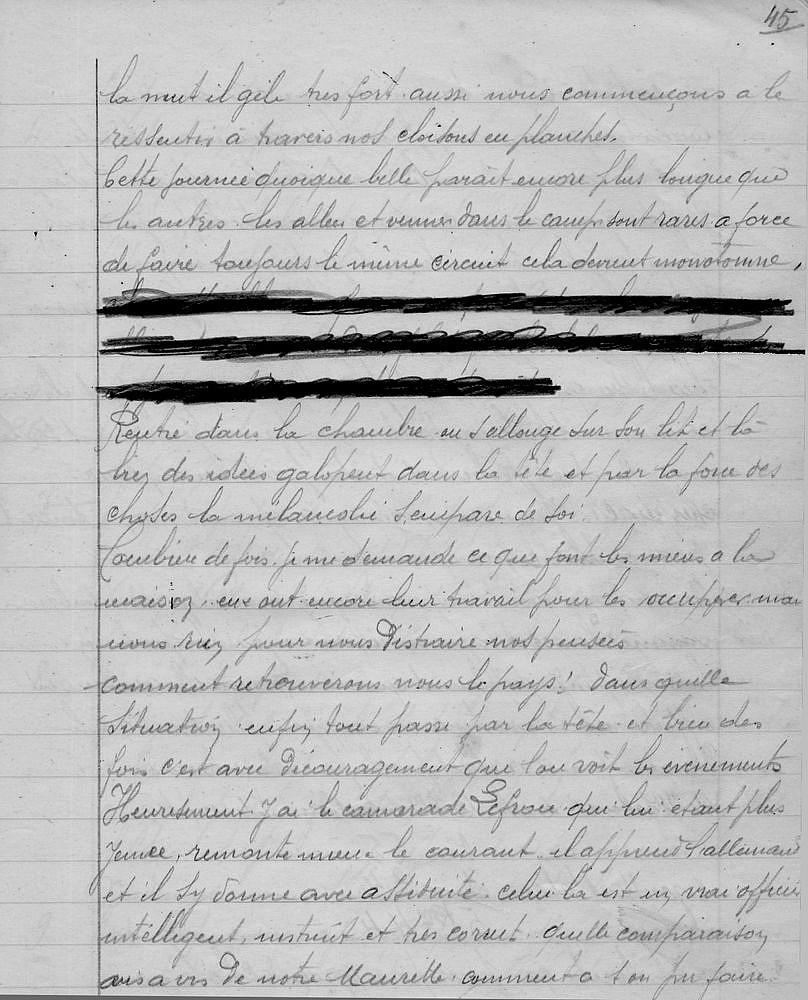 45
la nuit il gèle tres fort. aussi nous commençons a le
ressentir à travers nos cloisons en planches.
Cette journée quoique belle parait encore plus longue que
les autres. les allees et venues dans le camp sont rares a force
de faire toujours le même circuit cela devient monotonne,
Rentré dans la chambre on s'allonge sur son lit et là
bien des idées galopent dans la tête et par la force des
choses la mélancolie s'empare de soi.
Combien de fois je me demande ce que font les miens a la
maison. eux ont encore leur travail pour les occuper. mai
nous rien pour nous distraire nos pensées
comment retrouverons nous le pays! dans quelle
situation enfin tout passe par la tête et bien des
fois c'est avec découragement que l'on voit les évènements
Heureusement J'ai le camarade qui lui étant plus
Jeune, remonte mieux le courant. il apprend l'allemand
et il s'y donne avec assiduité. celui là est un vrai officier
intelligent, instruit et très correct. quelle comparaison
vis a vis de notre comment a t on pu faire